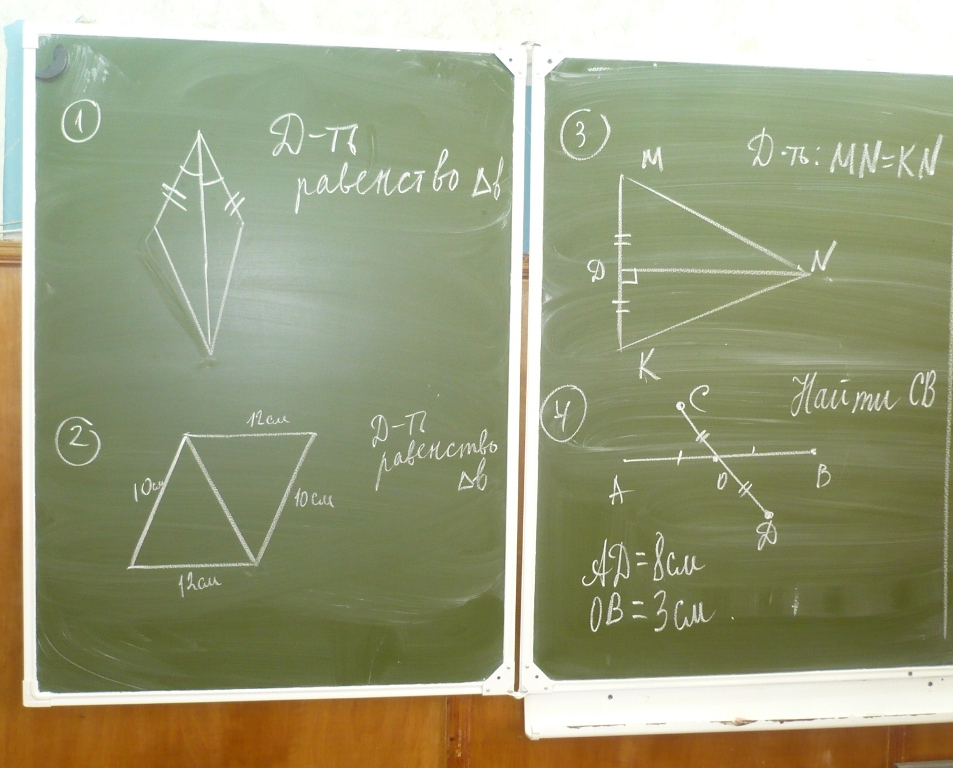 1
Д-ть
равенство Δв
2
12см
10см
10см
12см
Д-ть
равенство
Δв
3
Д-ть: MN=KN
M
D
N
K
4
Найти CB
C
A
O
B
D
AD=8см
OB=3см.